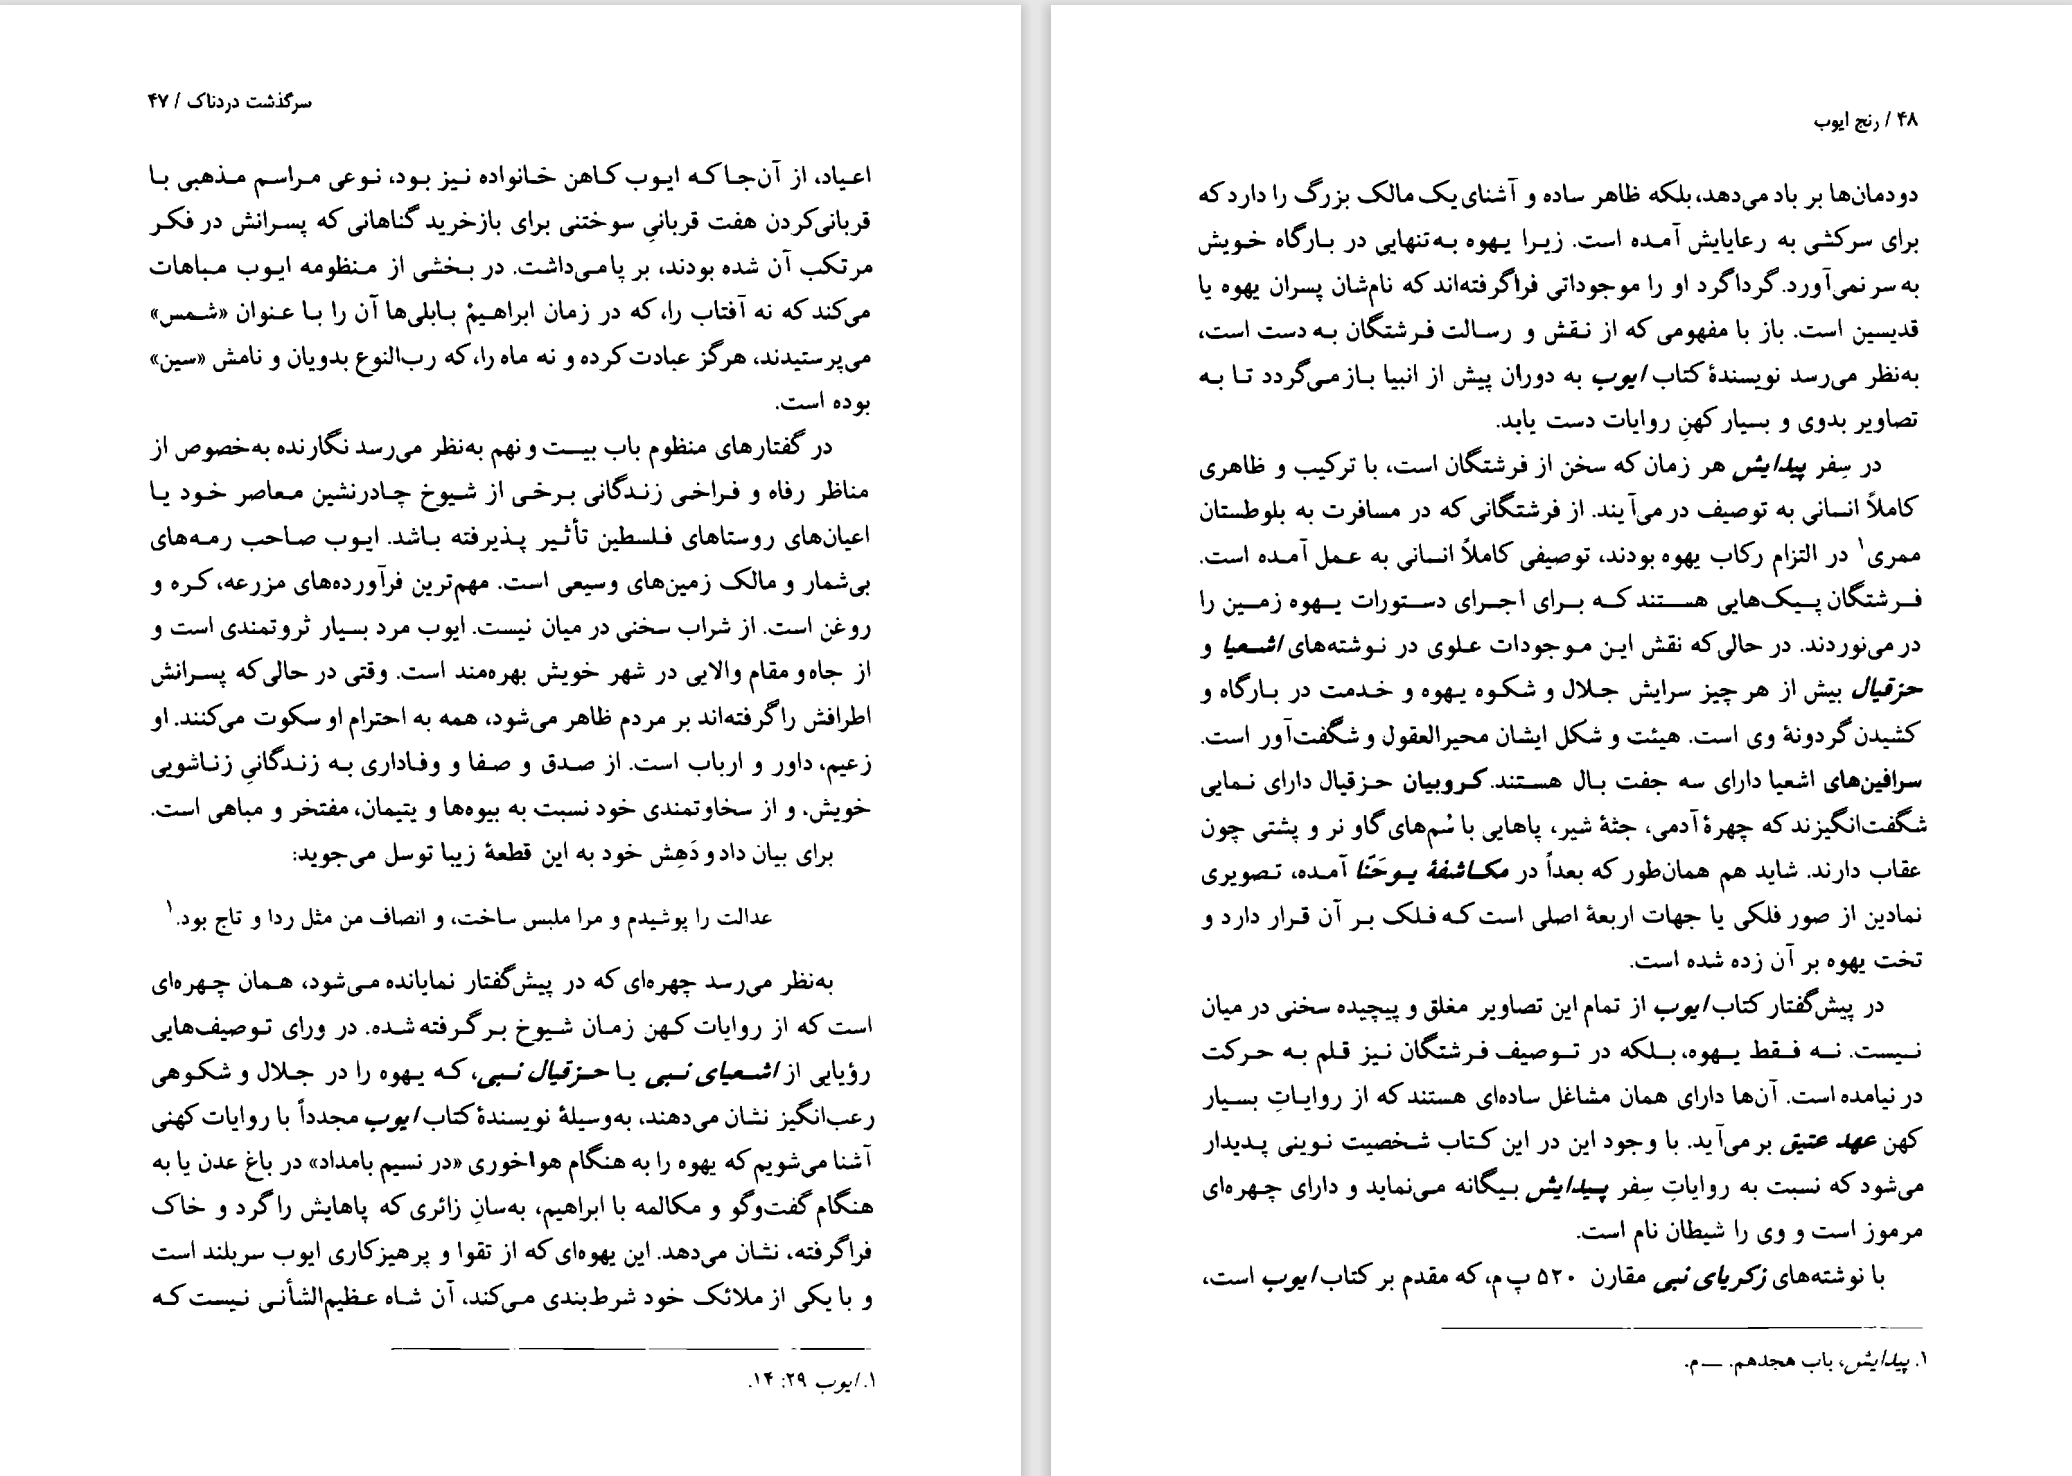 سرگذشت دردناک / ۴۷
اعیاد، از آن‌جا که ایوب کاهن خانواده نیز بود، نوعی مراسم مذهبی با
قربانی‌کردن هفت قربانیِ سوختنی برای بازخرید گناهانی که پسرانش در فکر
مرتکب آن شده بودند، بر پا می‌داشت. در بخشی از منظومه ایوب مباهات
می‌کند که نه آفتاب را، که در زمان ابراهیمْ بابلی‌ها آن را با عنوان «شمس»
می‌پرستیدند، هرگز عبادت کرده و نه ماه را، که رب‌النوع بدویان و نامش «سین»
بوده است.
در گفتارهای منظوم باب بیست و نهم به‌نظر می‌رسد نگارنده به‌خصوص از
مناظر رفاه و فراخی زندگانی برخی از شیوخ چادرنشین معاصر خود یا
اعیان‌های روستاهای فلسطین تأثیر پذیرفته باشد. ایوب صاحب رمه‌های
بی‌شمار و مالک زمین‌های وسیعی است. مهم‌ترین فرآورده‌های مزرعه، کره و
روغن است. از شراب سخنی در میان نیست. ایوب مرد بسیار ثروتمندی است و
از جاه و مقام والایی در شهر خویش بهره‌مند است. وقتی در حالی‌که پسرانش
اطرافش را گرفته‌اند بر مردم ظاهر می‌شود، همه به احترام او سکوت می‌کنند. او
زعیم، داور و ارباب است. از صدق و صفا و وفاداری به زندگانیِ زناشویی
خویش، و از سخاوتمندی خود نسبت به بیوه‌ها و یتیمان، مفتخر و مباهی است.
برای بیان داد و دَهِش خود به این قطعهٔ زیبا توسل می‌جوید:
عدالت را پوشیدم و مرا ملبس ساخت، و انصاف من مثل ردا و تاج بود.۱
به‌نظر می‌رسد چهره‌ای که در پیش‌گفتار نمایانده می‌شود، همان چهره‌ای
است که از روایات کهن زمان شیوخ برگرفته شده. در ورای توصیف‌هایی
رؤیایی از اشعیای نبی یا حزقیال نبی، که یهوه را در جلال و شکوهی
رعب‌انگیز نشان می‌دهند، به‌وسیلهٔ نویسندهٔ کتاب ایوب مجدداً با روایات کهنی
آشنا می‌شویم که یهوه را به هنگام هواخوری «در نسیم بامداد» در باغ عدن یا به
هنگام گفت‌وگو و مکالمه با ابراهیم، به‌سانِ زائری که پاهایش را گرد و خاک
فراگرفته، نشان می‌دهد. این یهوه‌ای که از تقوا و پرهیزکاری ایوب سربلند است
و با یکی از ملائک خود شرط‌بندی می‌کند، آن شاه عظیم‌الشأنی نیست که
۱. ایوب ۲۹: ۱۴.
۴۸ / رنج ایوب
دودمان‌ها بر باد می‌دهد، بلکه ظاهر ساده و آشنای یک مالک بزرگ را دارد که
برای سرکشی به رعایایش آمده است. زیرا یهوه به‌تنهایی در بارگاه خویش
به سر نمی‌آورد. گرداگرد او را موجوداتی فراگرفته‌اند که نام‌شان پسران یهوه یا
قدیسین است. باز با مفهومی که از نقش و رسالت فرشتگان به دست است،
به‌نظر می‌رسد نویسندهٔ کتاب ایوب به دوران پیش از انبیا بازمی‌گردد تا به
تصاویر بدوی و بسیار کهنِ روایات دست یابد.
در سِفر پیدایش هر زمان که سخن از فرشتگان است، با ترکیب و ظاهری
کاملاً انسانی به توصیف درمی‌آیند. از فرشتگانی که در مسافرت به بلوطستان
ممری۱ در التزام رکاب یهوه بودند، توصیفی کاملاً انسانی به عمل آمده است.
فرشتگان پیک‌هایی هستند که برای اجرای دستورات یهوه زمین را
درمی‌نوردند. در حالی‌که نقش این موجودات علوی در نوشته‌های اشعیا و
حزقیال بیش از هر چیز سرایش جلال و شکوه یهوه و خدمت در بارگاه و
کشیدن گردونهٔ وی است. هیئت و شکل ایشان محیرالعقول و شگفت‌آور است.
سرافین‌های اشعیا دارای سه جفت بال هستند. کروبیان حزقیال دارای نمایی
شگفت‌انگیزند که چهرهٔ آدمی، جثهٔ شیر، پاهایی با سُم‌های گاو نر و پشتی چون
عقاب دارند. شاید هم همان‌طور که بعداً در مکاشفهٔ یوحَنّا آمده، تصویری
نمادین از صور فلکی یا جهات اربعهٔ اصلی است که فلک بر آن قرار دارد و
تخت یهوه بر آن زده شده است.
در پیش‌گفتار کتاب ایوب از تمام این تصاویر مغلق و پیچیده سخنی در میان
نیست. نه فقط یهوه، بلکه در توصیف فرشتگان نیز قلم به حرکت
درنیامده است. آن‌ها دارای همان مشاغل ساده‌ای هستند که از روایاتِ بسیار
کهن عهد عتیق برمی‌آید. با وجود این در این کتاب شخصیت نوینی پدیدار
می‌شود که نسبت به روایاتِ سِفر پیدایش بیگانه می‌نماید و دارای چهره‌ای
مرموز است و وی را شیطان نام است.
با نوشته‌های زکریای نبی مقارن ۵۲۰ پ م، که مقدم بر کتاب ایوب است،
۱. پیدایش، باب هجدهم. ـــ م.